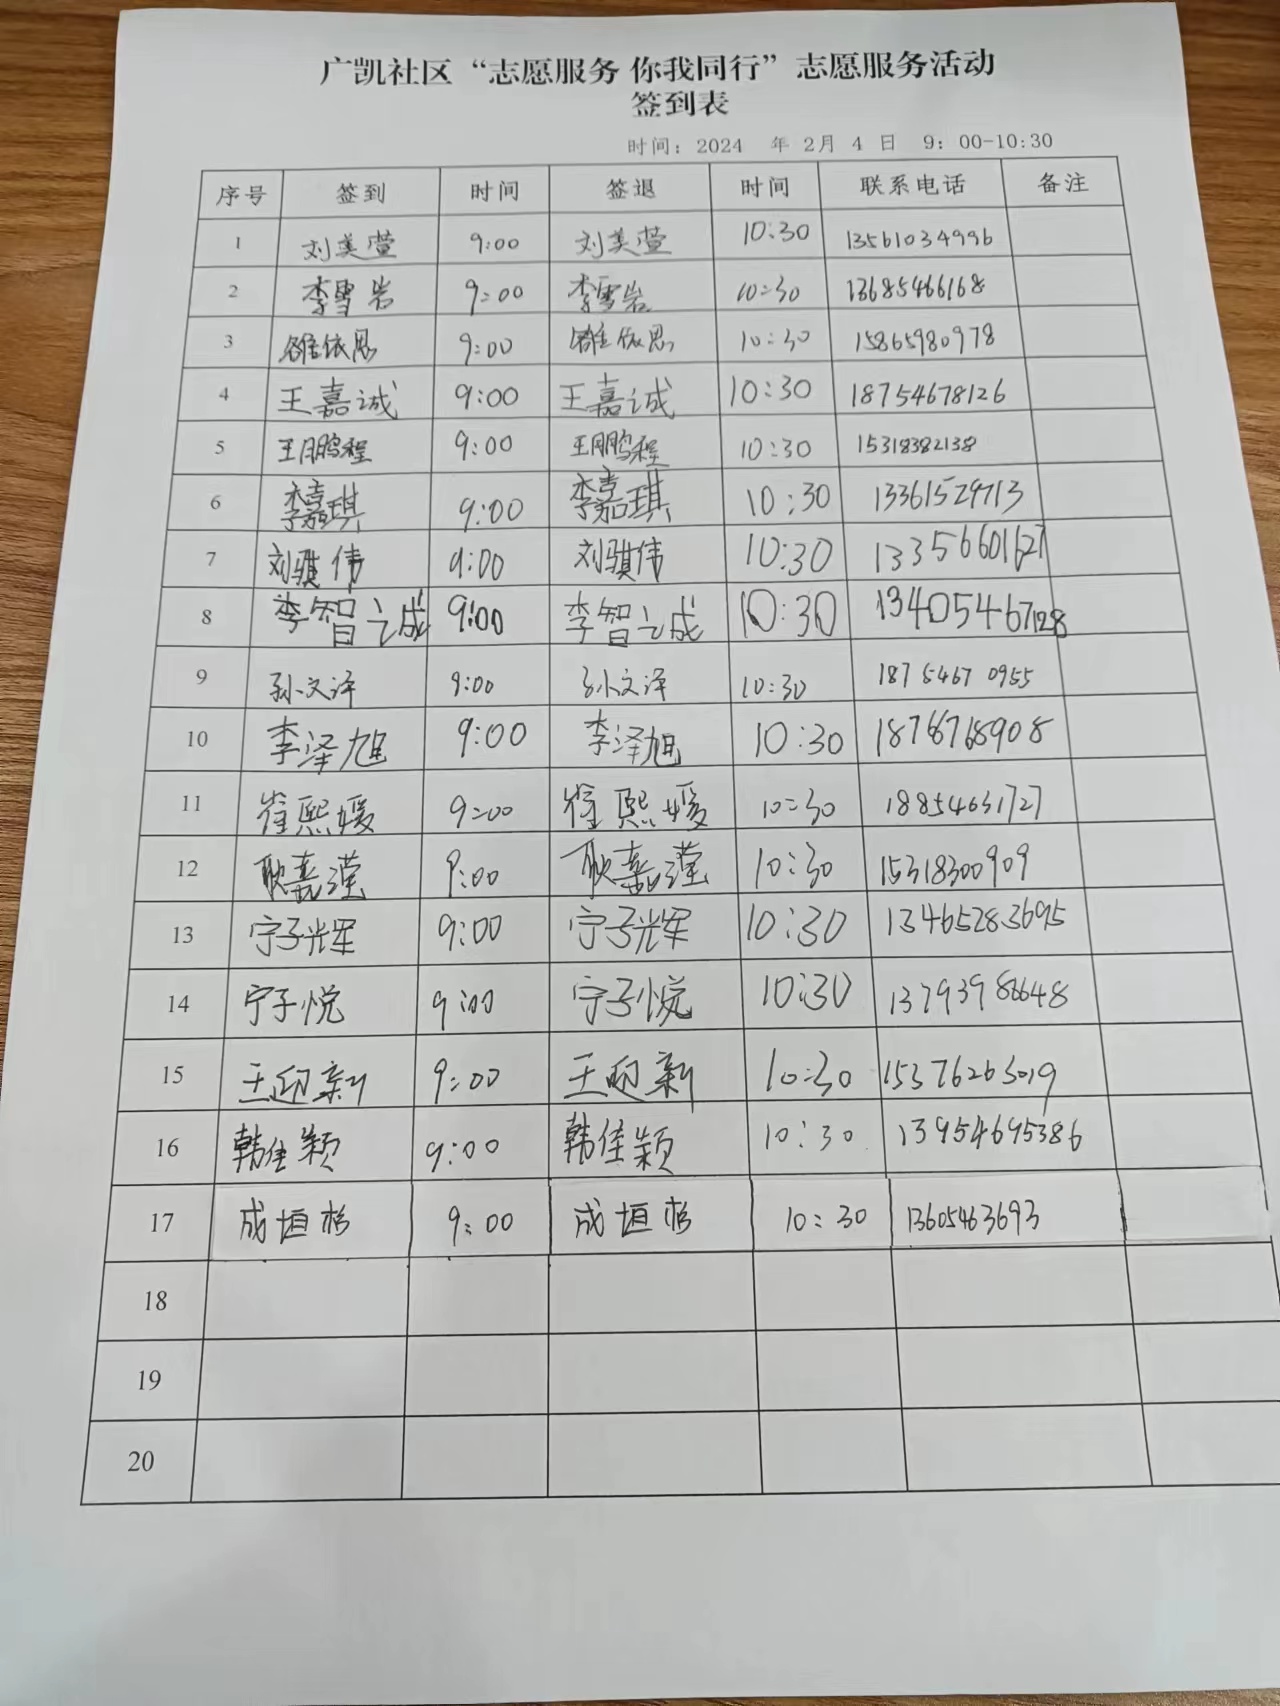 广凯社区“志愿服务 你我同行”志愿服务活动
签到表
时间：2024 年 2月 4 日 9：00-10:30
序号 签到 时间 签退 时间 联系电话 备注
1 刘美萱 9:00 刘美萱 10:30 13561034996
2 李雪岩 9:00 李雪岩 10:30 13685466168
3 雒依思 9:00 雒依思 10:30 15865980978
4 王嘉诚 9:00 王嘉诚 10:30 18754678126
5 王鹏程 9:00 王鹏程 10:30 15318382138
6 李嘉琪 9:00 李嘉琪 10:30 13361529713
7 刘骐伟 9:00 刘骐伟 10:30 13356601627
8 李智之成 9:00 李智之成 10:30 13405467128
9 孙文泽 9:00 孙文泽 10:30 187 5467 0955
10 李泽旭 9:00 李泽旭 10:30 1876768908
11 崔熙媛 9:00 崔熙媛 10:30 18854631727
12 耿嘉滢 9:00 耿嘉滢 10:30 15318300909
13 宁子光军 9:00 宁子光军 10:30 13465283695
14 宁子悦 9:00 宁子悦 10:30 13793986648
15 王迎新 9:00 王迎新 10:30 15376263019
16 韩佳颖 9:00 韩佳颖 10:30 13954695386
17 成垣杉 9:00 成垣杉 10:30 13605463693
18
19
20